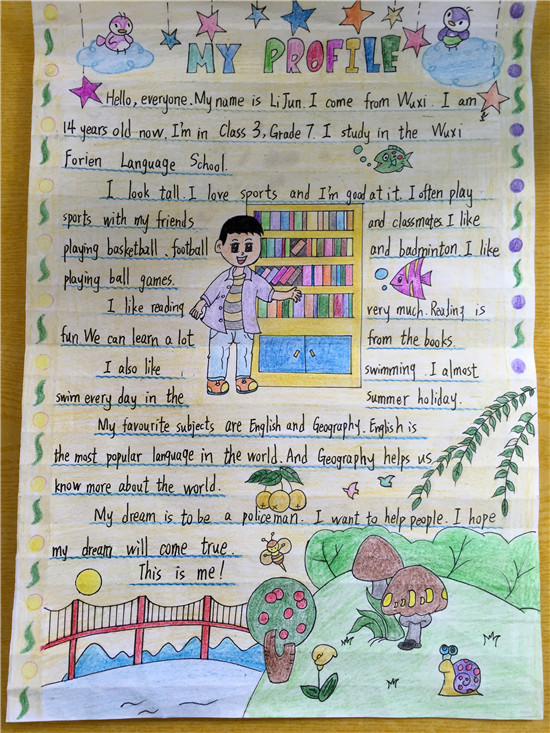 MY PROFILE
Hello, everyone. My name is Li Jun. I come from Wuxi. I am
14 years old now. I'm in Class 3, Grade 7. I study in the Wuxi
Forien Language School.
I look tall. I love sports and I'm good at it. I often play
sports with my friends and classmates. I like
playing basketball, football and badminton. I like
playing ball games.
I like reading very much. Reading is
fun. We can learn a lot from the books.
I also like swimming. I almost
swim every day in the summer holiday.
My favourite subjects are English and Geography. English is
the most popular language in the world. And Geography helps us
know more about the world.
My dream is to be a policeman. I want to help people. I hope
my dream will come true.
This is me!